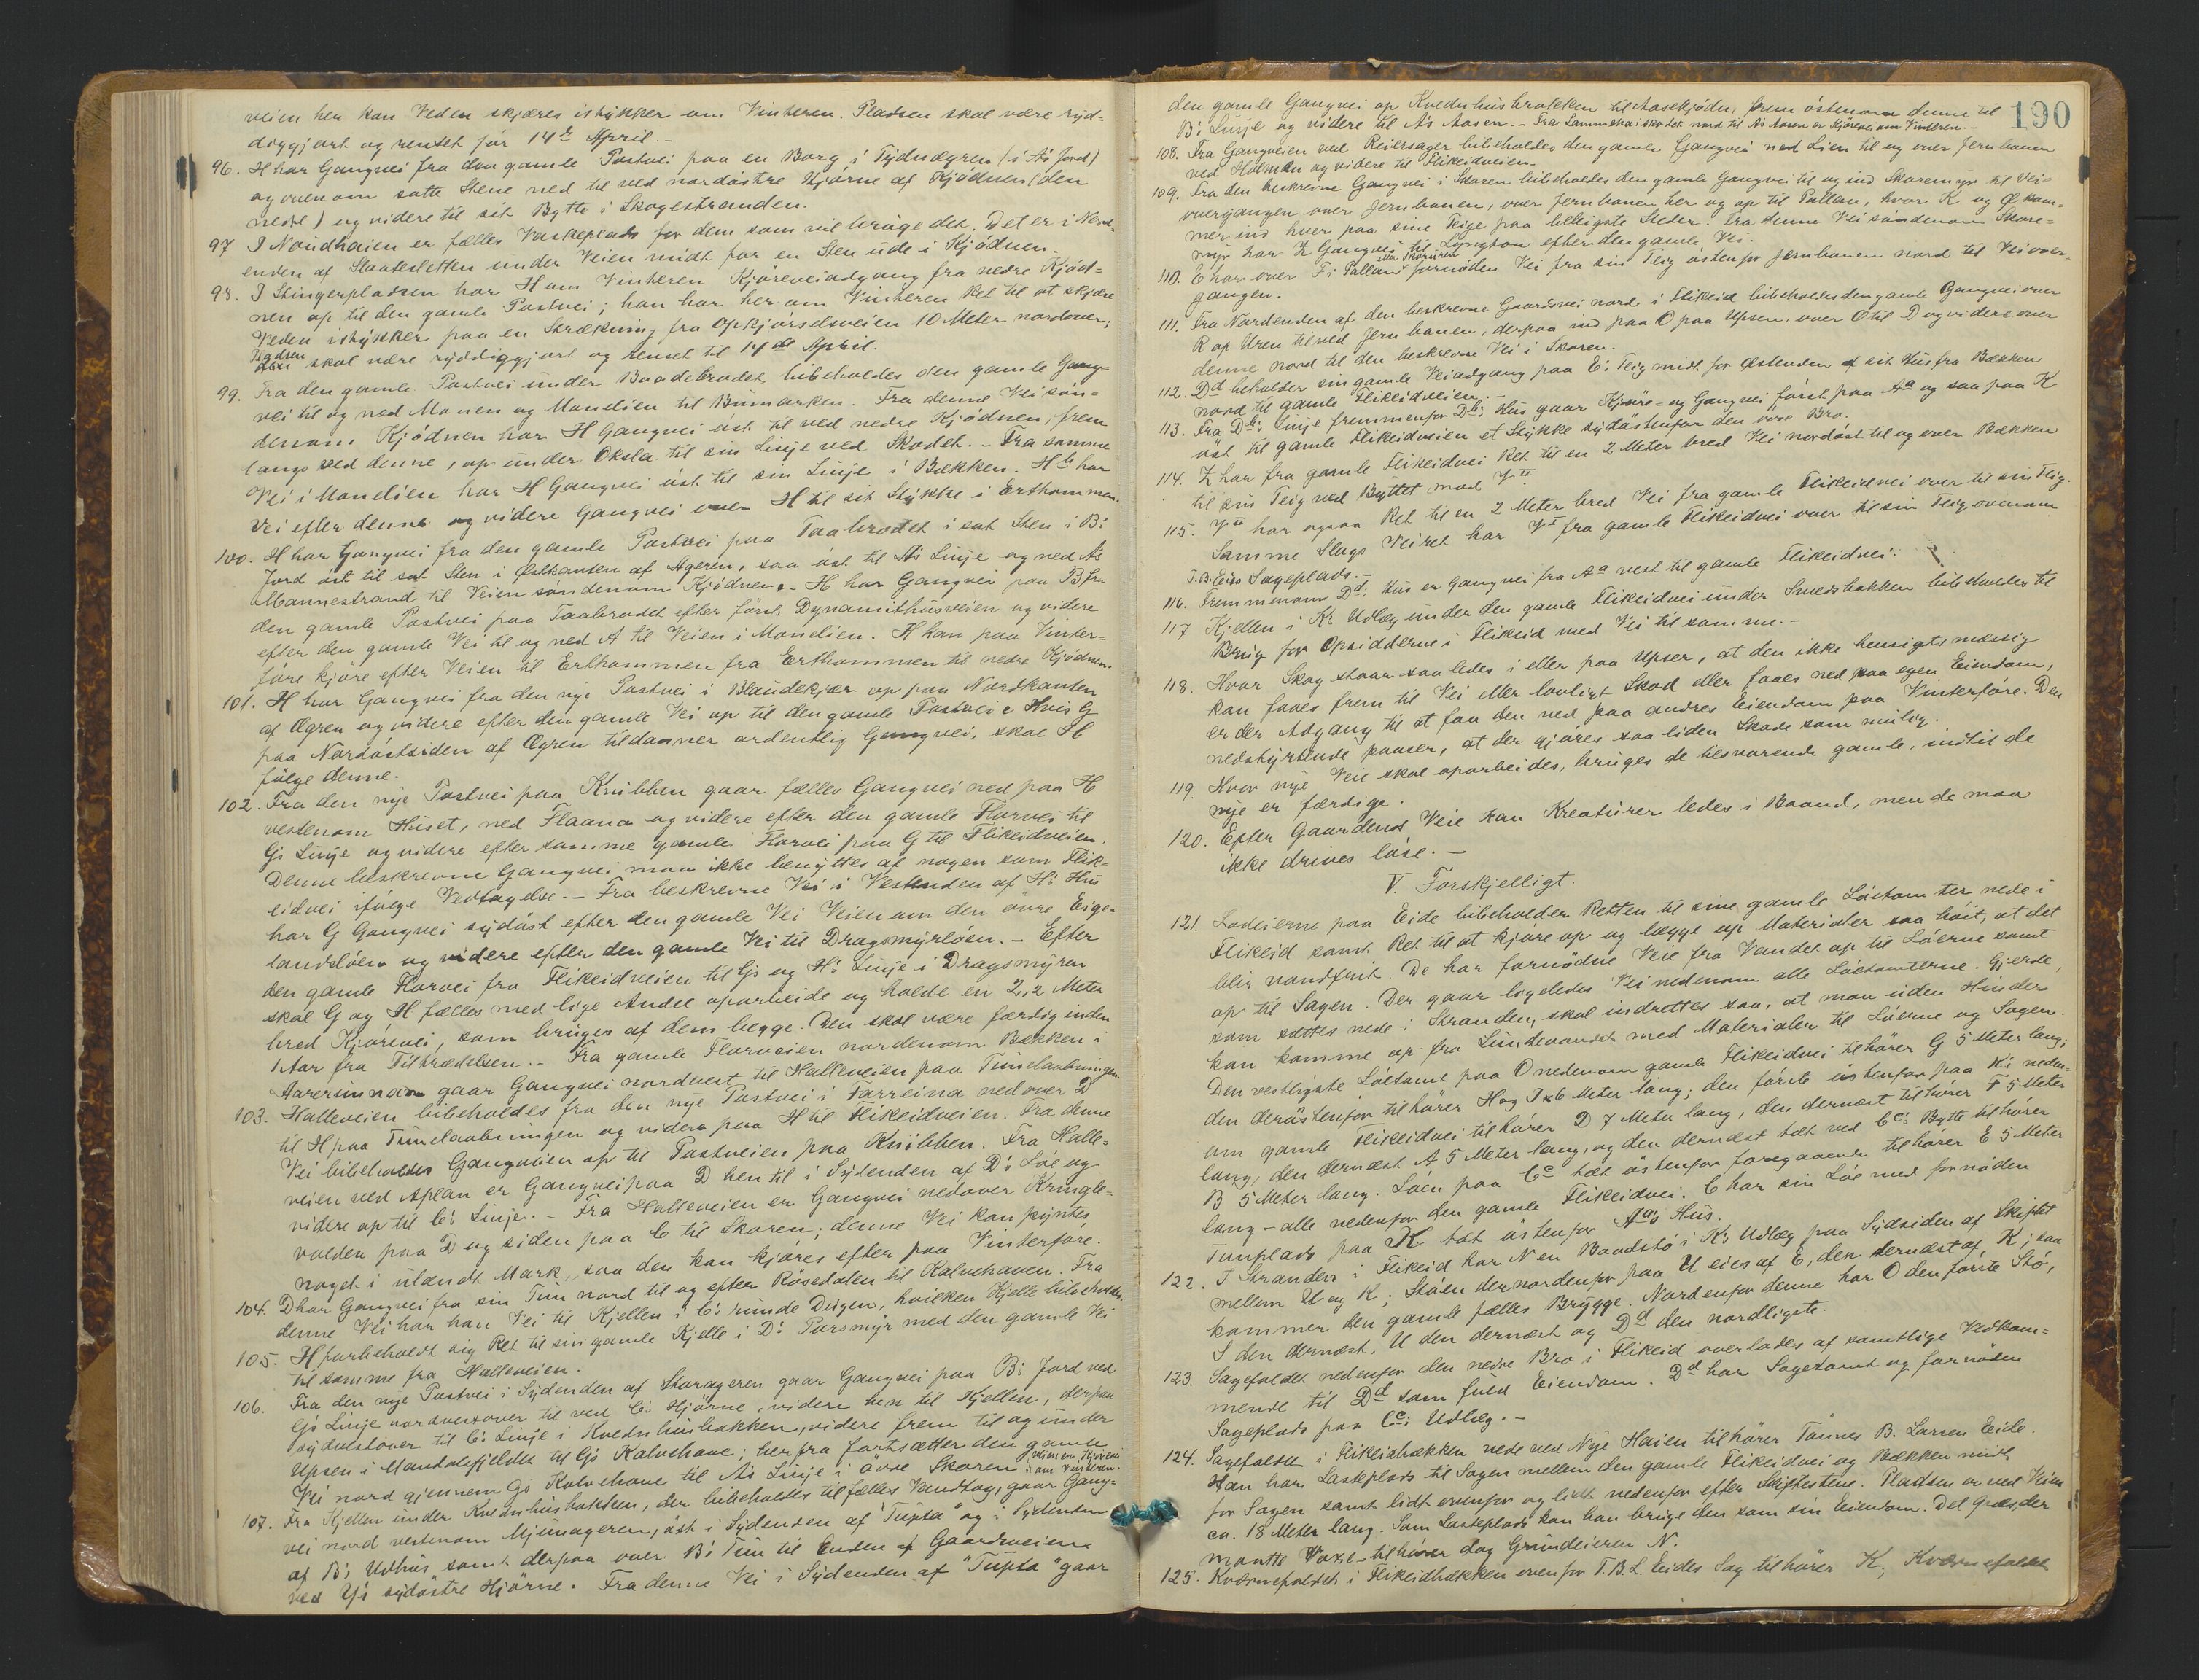 veien hen kan Veden skjæres istykker om Vinteren. Pladsen skal være ryd-
diggjort og renset før 14de April.-
96. H har Gangvei fra den gamle Postvei paa en Borg i Tydnægren (i A's Jord)
og ovenom satte Stene ned til ved nordøstre Hjørne af Kjødnen (den
nedre) og videre til sit Bytte i Skogestranden.
97 I Noudhaien er fælles Vaskeplads for dem som vil bruge det. Det er i Nord-
enden af Slaatesletten under Veien midt for en Sten ude i Kjødnen.
98. I Stingerpladsen har H om Vinteren Kjøreveiadgang fra nedre Kjød-
nen op til den gamle Postvei; han har her om Vinteren Ret til at skjære
Veden istykker paa en Strækning fra Opkjørselsveien 10 Meter nordover;
Pladsen skal være ryddiggjort og renset til 14de April.
99. Fra den gamle Postvei under Baadebrodet bibeholdes den gamle Gang-
vei til og ned Monen og Monelien til Bumarken. Fra denne Vei søn-
denom Kjødnen har H Gangvei øst til ved nedre Kjødnen, frem
langs ved denne, op under Oksla til sin Linje ved Skodet. - Fra samme
Vei i Monelien har H Gangvei øst til sin Linje i Bækken. Hb har
Vei efter denne og videre Gangvei over H til sit Stykke i Erthommen.
100. H har Gangvei fra den gamle Postvei paa Taabrodet i sat Sten i B's
Jord øst til sat Sten i Østkanten af Ageren, saa øst til A's Linje og ned A's
Mannestrand til Veien søndenom Kjødnen. - H har Gangvei paa B fra
den gamle Postvei paa Taabrodet efter først Dynamithusveien og videre
efter den gamle Vei til og ned A til Veien i Monelien. H kan paa Vinter-
føre kjøre efter Veien til Erthommen fra Erthommen til nedre Kjødnen.
101. H har Gangvei fra den nye Postvei i Blaudekjær op paa Nordkanten
af Ægren og videre efter den gamle Vei op til den gamle Postvei. Hvis G
paa Nordøstsiden af Ægren tildanner ordentlig Gangvei, skal H
følge denne.
102. Fra den nye Postvei paa Knibben gaar fælles Gangvei ned paa H
vestenom Huset, ned Flaana og videre efter den gamle Florvei til
G's Linje og videre efter samme gamle Florvei paa G til Flikeidveien.
Denne beskrevne Gangvei maa ikke benyttes af nogen som Flik-
eidvei ifølge Vedtagelse. - Fra beskrevne Vei i Vestenden af H's Hus
har G Gangvei sydøst efter den gamle Vei Veien om den øvre Eige-
landsløen og videre efter den gamle Vei til Dragsmyrløen. - Efter
den gamle Florvei fra Flikeidveien til G's og H's Linje i Dragsmyren
skal G og H fælles med lige Andel oparbeide og holde en 2,2 Meter
bred Kjørevei, som bruges af dem begge. Den skal være færdig inden
1 Aar fra Tiltrædelsen. - Fra gamle Florveien nordenom Bækken i
Aarerunnan gaar Gangvei nordvest til Halleveien paa Tunelaabningen.
103. Halleveien bibeholdes fra den nye Postvei i Farreina nedover D
til H paa Tunelaabningen og videre paa H til Flikeidveien. Fra denne
Vei bibeholdes Gangveien op til Postveien paa Knibben. Fra Halle-
veien ved Aplan er Gangvei paa D hen til i Sydenden af D's Løe og
videre op til C's Linje. - Fra Halleveien er Gangvei nedover Kringle-
volden paa D og siden paa C til Skoren; denne Vei kan pyntes
noget i ulændt Mark, saa den kan kjøres efter paa Vinterføre.
104. D har Gangvei fra sin Tun nord til og efter Rosedalen til Kalvehaven. Fra
denne Vei har han Vei til Kjellen i C's runde Deigen, hvilken Kjelle bibeholdes.
105. H forbeholdt sig Ret til sin gamle Kjelle i D's Porsmyr med den gamle Vei
til samme fra Halleveien.
106. Fra den nye Postvei i Sydenden af Storageren gaar Gangvei paa B's Jord ved
G's Linje nordvestover til ved C's Hjørne, videre hen til Kjellen, derpaa
sydvestover til C's Linje i Kvednhusbakken, videre frem til og under
Upsen i Mandalsfjeldet til G's Kalvehave; herfra fortsætter den gamle
Vei nord gjennem G's Kalvehave til A's Linje i øvre Skoren
107. Fra Kjellen under Kvednhusbakken, der bibeholdes til fælles Vandtag, gaar Gang-
vei nord vestenom Mjunageren, øst i Sydenden af "Tupta" og i Sydenden
af B's Udhus samt derpaa over B's Tun til Enden af Gaardsveien
ved Y's sydøstre Hjørne. Fra denne Vei i Sydenden af "Tupta" gaar
190
den gamle Gangvei op Kvednhusbrækken til Aasekjødn, frem østenom denne til
B's Linje og videre til A's Aasen. - Fra Sammehaiskodet nord til A's Aasen er Kjørevei om Vinteren. -
108. Fra Gangveien ved Reiersager bibeholdes den gamle Gangvei ned Lien til og over Jernbanen
ved Holmen og videre til Flikeidveien.
109. Fra den beskrevne Gangvei i Skoren bibeholdes den gamle Gangvei til og ind Skoremyr til Vei-
overgangen over Jernbanen, over Jernbanen her og op til Pallan, hvor K og Æ kom-
mer ind hver paa sine Teige paa belleigste Steder. Fra denne Vei søndenom Skore-
myr har Z Gangvei til Lyngton efter den gamle Vei.
110. E har over F's Pallan fornøden Vei fra sin Teig østenfor Jernbanen nord til Veiover-
gangen.
111. Fra Nordenden af den beskrevne Gaardsvei nord i Flikeid bibeholdes den gamle Gangvei over
R op Uren til ved Jernbanen, derpaa ind paa O paa Upsen, over O til D og videre over
denne nord til den beskrevne Vei i Skoren.
112. Dd beholder sin gamle Veiadgang paa E's Teig midt for Østenden af sit Hus fra Bækken
nord til gamle Flikeidveien. -
113. Fra Db's Linje fremmenfor Db's Hus gaar Kjøre- og Gangvei først paa Aa og saa paa K
øst til gamle Flikeidveien et Stykke sydøstenfor den øvre Bro.
114. Z har fra gamle Flikeidvei Ret til en 2 Meter bred Vei nordøst til og over Bækken
til sin Teig ved Byttet mod VII
115. VII har ogsaa Ret til en 2 Meter bred Vei fra gamle Flikeidvei over til sin Teig.
Samme Slags Veiret har VI fra gamle Flikeidvei over til sin Teig ovenom
T.B. Eides Sageplads. -
116. Fremmenom Dd's Hus er Gangvei fra Aa vest til gamle Flikeidvei.
117 Kjellen i K's Udlæg under den gamle Flikeidvei under Smedsbakken bibeholdes til
Brug for Opsidderne i Flikeid med Vei til samme. -
118. Hvor Skog staar saaledes i eller paa Upser, at den ikke hensigtsmæssig
kan faaes frem til Vei eller lovligt Skod eller faaes ned paa egen Eiendom,
er der Adgang til at faa den ned paa andres Eiendom paa Vinterføre. Den
nedstyrtende paaser, at der gjøres saa liden Skade som mulig.
119. Hvor nye Veie skal oparbeides, bruges de tilsvarende gamle, indtil de
nye er færdige.
120. Efter Gaardens Veie kan Kreaturer ledes i Baand, men de maa
ikke drives løse. -
V. Forskjelligt.
121. Lodeierne paa Eide bibeholder Retten til sine gamle Løetomter nede i
Flikeid samt Ret til at kjøre op og lægge op Materialer saa høit, at det
blir vandfrit. De har fornødne Veie fra Vandet op til Løerne samt
op til Sagen. Der gaar ligeledes Vei nedenom alle Løetomterne. Gjerde,
som sættes nede i Stranden, skal indrettes saa, at man uden Hinder
kan komme op fra Lundevandet med Materialer til Løerne og Sagen.
Den vestligste Løetomt paa O nedenom gamle Flikeidvei tilhører G 5 Meter lang;
den derøstenfor tilhører H og I x 6 Meter lang; den første østenfor paa K's neden-
om gamle Flikeidvei tilhører D 7 Meter lang, den dernæst tilhører F 5 Meter
lang, den dernæst A 5 Meter lang, og den dernæst tæt ved Cc's Bytte tilhører
B 5 Meter lang. Løen paa Cc tæt østenfor foregaaende tilhører E 5 Meter
lang - alle nedenfor den gamle Flikeidvei. C har sin Løe med fornøden
Tunplads paa K tæt østenfor Aa's Hus.
122. I Stranden i Flikeid har N en Baadstø i K's Udlæg paa Sydsiden af Skiftet
mellem U og K; Støen der nordenfor paa U eies af E, den dernæst af K; saa
kommer den gamle fælles Brygge. Nordenfor denne har O den første Stø,
I den dernæst, U den dernæst og Dd den nordligste.
123. Sagefaldet nedenfor den nedre Bro i Flikeid overlades af samtlige Vedkom-
mende til Dd som fuld Eiendom. Dd har Sagetomt og fornøden
Sageplads paa Cc's Udlæg. -
124. Sagefaldet i Flikeidbækken nede ved Nye Haien tilhører Tønnes B. Larsen Eide.
Han har Lasteplads til Sagen mellem den gamle Flikeidvei og Bækken midt
for Sagen samt lidt ovenfor og lidt nedenfor efter Skiftestene. Pladsen er ved Veien
ca. 18 Meter lang. Som Lasteplads kan han bruge den som sin Eiendom. Det Græs, der
maatte Voxe, tilhører dog Grundeieren N.
125. Kværnefaldet i Flikeidbækken ovenfor T.B.L. Eides Sag tilhører K, Kværnefaldet